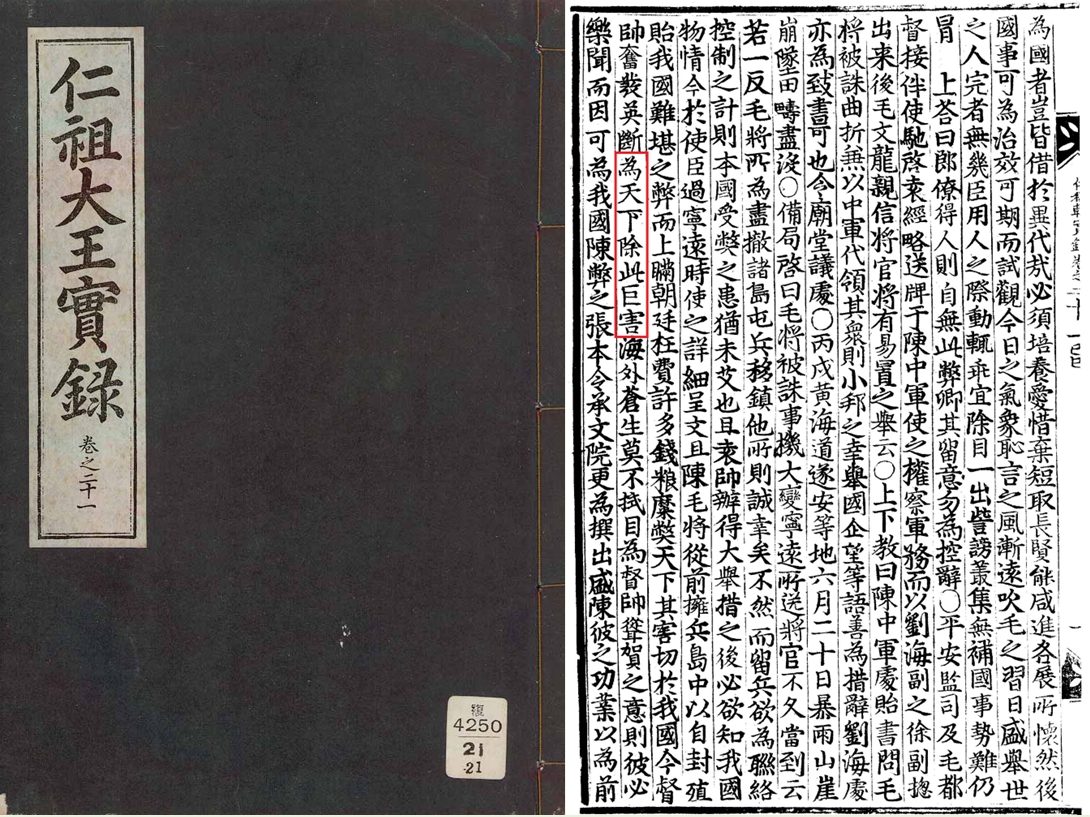 仁祖大王實錄
卷之二十一
4250
21
21
為國者豈皆借於異代哉必須培養愛惜棄短取長賢能咸進各展所懷然後
國事可為治效可期而試觀今日之氣象恥言之風漸遠吹毛之習日盛舉世
之人完者無幾臣用人之際動輒乖宜除目一出訾謗叢集無補國事勢難仍
冒 上答曰郎僚得人則自無此弊卿其留意勿為控辭○平安監司及毛都
督接伴使馳啓袁經略送牌于陳中軍使之權察軍務而以劉海副之徐副摠
出來後毛文龍親信將官將有易置之舉云○上下教曰陳中軍處貽書問毛
將被誅曲折無以中軍代領其衆則小邦之幸舉國企望等語善為措辭劉海處
亦為致書可也令廟堂議處○丙戌黃海道遂安等地六月二十日暴雨山崖
崩墜田疇盡沒○備局啓曰毛將被誅事機大變寧遠所送將官不久當到云
若一反毛將所為盡撤諸島屯兵移鎮他所則誠幸矣不然而留兵欲為聯絡
控制之計則本國受獘之患猶未艾也且袁帥辦得大舉措之後必欲知我國
物情今於使臣過寧遠時使之詳細呈文且陳毛將從前擁兵島中以自封殖
貽我國難堪之弊而上瞞朝廷枉費許多錢粮糜獘天下其害切於我國今督
帥奮發英斷為天下除此巨害海外蒼生莫不拭目為督帥聳賀之意則彼必
樂聞而因可為我國陳弊之張本令承文院更為撰出盛陳彼之功業以為前